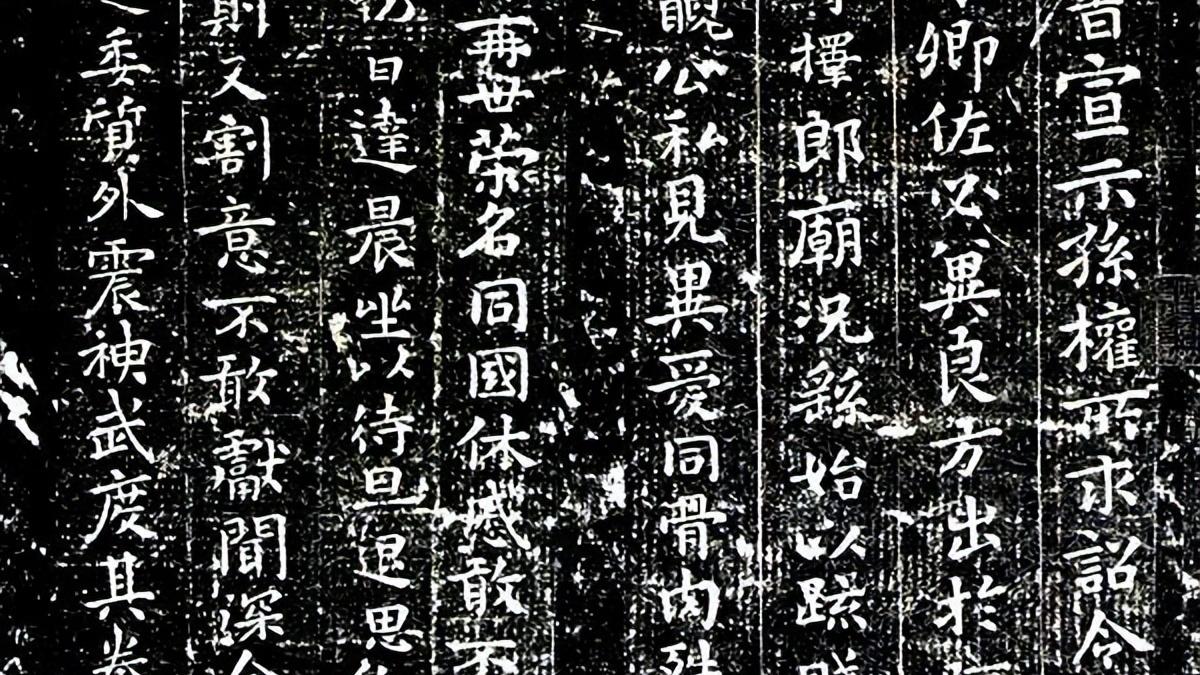 旨宣示孫權所求詔令
卿佐必冀良方出於
擇郎廟況繇始以疏賤
覩公私見異愛同骨肉殊
再世榮名同國休慼敢不
日達晨坐以待旦退思
則又割意不敢獻聞深念
委質外震神武度其拳